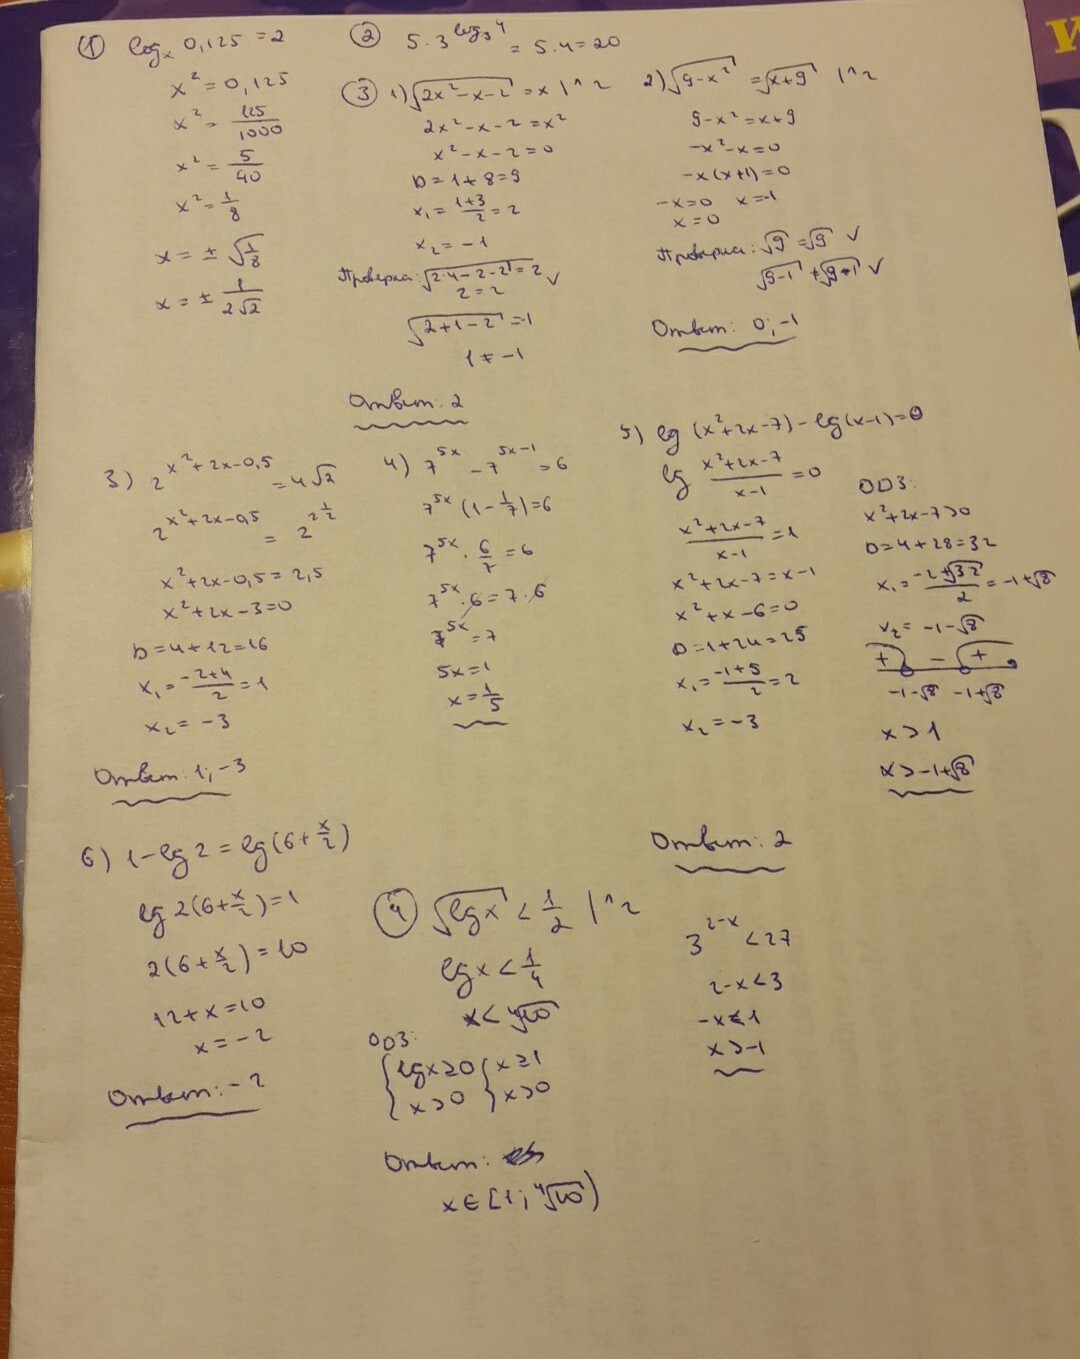 ① log_x 0,125 = 2
x² = 0,125
x² = 125/1000
x² = 5/40
x² = 1/8
x = ± √(1/8)
x = ± 1/(2√2)
② 5·3^(log₃ 4) = 5·4 = 20
③ 1) √(2x²-x-2) = x |^2
2x²-x-2 = x²
x²-x-2 = 0
D = 1+8 = 9
x₁ = (1+3)/2 = 2
x₂ = -1
Проверка: √(2·4-2-2) = 2 ✓
2 = 2
√(2+1-2) = -1
1 ≠ -1
Ответ: 2
2) √(9-x²) = √(x+9) |^2
9-x² = x+9
-x²-x = 0
-x(x+1) = 0
-x=0 x=-1
x=0
Проверка: √9 = √9 ✓
√(9-1) = √(9-1) ✓
Ответ: 0; -1
3) 2^(x²+2x-0,5) = 4√2
2^(x²+2x-0,5) = 2^(2 1/2)
x²+2x-0,5 = 2,5
x²+2x-3=0
D = 4+12=16
x₁ = (-2+4)/2 = 1
x₂ = -3
Ответ: 1; -3
4) 7^(5x) - 7^(5x-1) = 6
7^(5x) (1-1/7) = 6
7^(5x) · 6/7 = 6
7^(5x)·6 = 7·6
7^(5x) = 7
5x = 1
x = 1/5
5) lg (x²+2x-7) - lg(x-1) = 0
lg (x²+2x-7)/(x-1) = 0
(x²+2x-7)/(x-1) = 1
x²+2x-7 = x-1
x²+x-6=0
D = 1+24 = 25
x₁ = (-1+5)/2 = 2
x₂ = -3
ОДЗ:
x²+2x-7>0
D = 4+28=32
x₁ = (-2+√32)/2 = -1+√8
x₂ = -1-√8
+ - +
-1-√8 -1+√8
x > 1
x > -1+√8
Ответ: 2
6) 1-lg 2 = lg(6+x/2)
lg 2(6+x/2) = 1
2(6+x/2) = 10
12+x=10
x = -2
Ответ: -2
④ √(lg x) < 1/2 |^2
lg x < 1/4
x < ⁴√10
ОДЗ:
{ lg x ≥ 0 { x ≥ 1
{ x > 0 { x > 0
Ответ:
x ∈ [1; ⁴√10)
3^(2-x) < 27
2-x < 3
-x < 1
x > -1